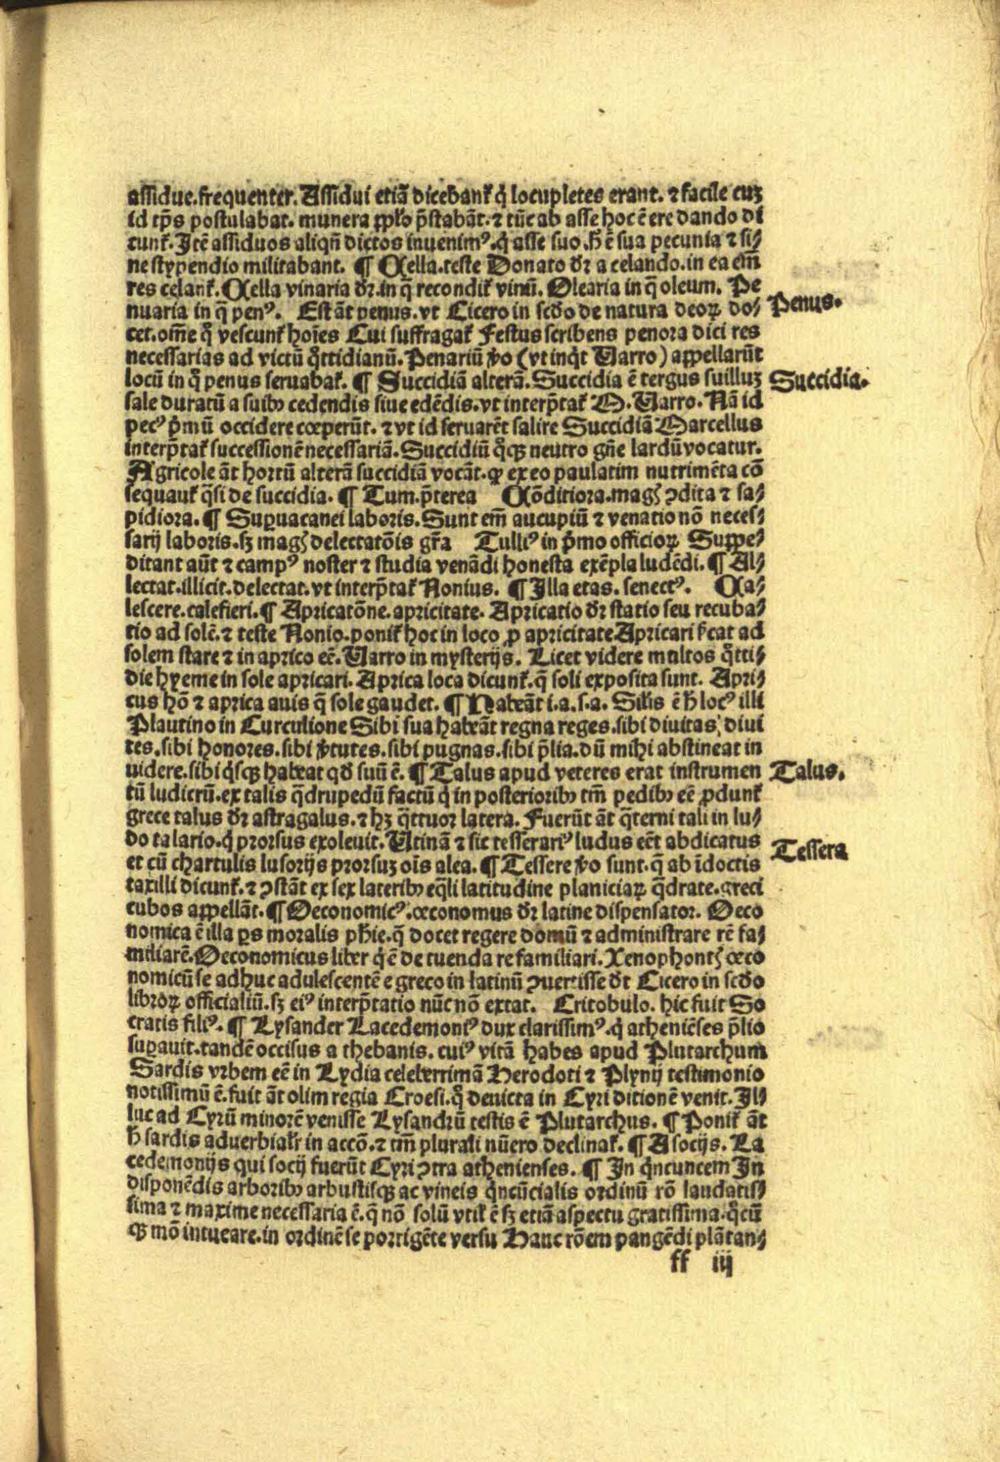 assidue.frequenter. Assidui etiã dicebant᷑ q̇ locupletes erant. ⁊ facile cuʒ
id tp̃s postulabat. munera ꝓpl̃o p̃stabãt. ⁊ tũc ab asse hoc ẽ ere dando di
cunt᷑. Itẽ assiduos aliqñ dictos inuenimꝰ. q̇ asse suo .h̃ ẽ sua pecunia ⁊ si⸗
ne stypendio militabant. ¶ Cella. teste Donato dr̃ a celando. in ea em̃
res celant᷑. Cella vinaria dr̃. in q̃ recondit᷑ vinũ. Olearia in q̃ oleum. Pe
nuaria in q̃ penꝰ. Est ãt penus. vt Cicero in scḋo de natura deoꝝ do⸗
cet. om̃e q̊ vescunt᷑ hoĩes Cui suffragat᷑ Festus scribens penora dici res
necessarias ad victũ q̊ttidianũ. Penariũ ṽo (vt inq̇t Varro) appellarũt
locũ in q̊ penus seruabat᷑. ¶ Succidiã alterã. Succidia ẽ tergus suilluʒ
sale duratũ a suibꝰ cedendis siue edẽdis. vt interp̃tat᷑ M. Varro. Nã id
pecꝰ p̃mũ occidere cœperũt. ⁊ vt id seruarẽt salire Succidiã Marcellus
interp̃tat᷑ successionẽ necessariã. Succidiũ q̊qꝫ neutro gñe lardũ vocatur.
Agricole ãt hortũ alterã succidiã vocãt. ꝙ ex eo paulatim nutrimẽta cõ
sequant᷑ q̃si de succidia. ¶ Tum. p̃terea Cõditiora. magꝭ ꝯdita ⁊ sa⸗
pidiora. ¶ Suꝑuacanei laboris. Sunt em̃ aucupiũ ⁊ venatio nõ neces⸗
sarij laboris. sʒ magꝭ delectatõis gr̃a Tulliꝰ in p̃mo officioꝝ Suppe⸗
ditant aũt ⁊ campꝰ noster ⁊ studia venãdi honesta exẽpla ludẽdi. ¶ Al⸗
lectat. illicit. delectat. vt interp̃tat᷑ Nonius. ¶ Illa etas. senectꝰ. Ca⸗
lescere. calefieri. ¶ Apricatõne. apricitate. Apricatio dr̃ statio seu recuba⸗
tio ad solẽ. ⁊ teste Nonio. ponit᷑ hoc in loco ꝓ apricitate Apricari s̃cat ad
solem stare ⁊ in aprico eẽ. Varro in mysterijs. Licet videre multos q̊tti⸗
die hyeme in sole apricari. Aprica loca dicunt᷑. q̃ soli exposita sunt. Apri⸗
cus hõ ⁊ aprica auis q̃ sole gaudet. ¶ Habeãt i. a. s. a. Silis ẽ h̃ locꝰ illi
Plautino in Curculione Sibi sua habeãt regna reges. sibi diuitas diui
tes. sibi honores. sibi ṽtutes. sibi pugnas. sibi p̃lia. dũ mihi abstineat in
uidere. sibi q̇sqꝫ habeat qḋ suũ ẽ. ¶ Talus apud veteres erat instrumen
tũ ludicrũ. ex talis q̃drupedũ factũ q̇ in posterioribꝰ tm̃ pedibꝰ eẽ ꝓdunt᷑
grece talus dr̃ astragalus. ⁊ hʒ q̃ttuor latera. Fuerũt ãt q̃terni tali in lu⸗
do talario. q̇ prorsus exoleuit. Utinã ⁊ sic tesserariꝰ ludus eẽt abdicatus
et cũ chartulis lusorijs prorsuʒ oĩs alea. ¶ Tessere ṽo sunt. q̃ ab ĩdoctis
taxilli dicunt᷑. ⁊ ꝯstãt ex sex lateribꝰ eq̃li latitudine planiciaꝝ q̃drate. greci
cubos appellãt. ¶ Oeconomicꝰ. œconomus dr̃ latine dispensator. Oeco
nomica ẽ illa ꝑs moralis ph̃ie. q̃ docet regere domũ ⁊ administrare rẽ fa⸗
miliarẽ. Oeconomicus liber q̇ ẽ de tuenda re familiari. Xenophontꝭ œco
nomicũ se adhuc adulescentẽ e greco in latinũ ꝯuertisse dr̃ Cicero in scḋo
libroꝝ officialiũ. sʒ eiꝰ interp̃tatio nũc nõ extat. Critobulo. hic fuit So
cratis filiꝰ. ¶ Lysander Lacedemoniꝰ dux clarissimꝰ. q̇ atheniẽses p̃lio
suꝑauit. tandẽ occisus a thebanis. cuiꝰ vitã habes apud Plutarchum
Sardis vrbem eẽ in Lydia celeberrimã Herodoti ⁊ Plynij testimonio
notissimũ ẽ. fuit ãt olim regia Croesi. q̊ deuicta in Cyri ditionẽ venit. Il⸗
luc ad Cyrũ minorẽ venisse Lysandrũ testis ẽ Plutarchus. ¶ Ponit᷑ ãt
h̃ sardis aduerbialr̃ in accõ. ⁊ tm̃ plurali nũero declinat᷑. ¶ A socijs. La
cedemonijs qui socij fuerũt Cyri ꝯtra athenienses. ¶ In q̇ncuncem In
disponẽdis arboribꝰ arbustisqꝫ ac vineis q̇ncũcialis ordinũ rõ laudatis⸗
sima ⁊ maxime necessaria ẽ. q̃ nõ solũ vtil̃ ẽ sʒ etiã aspectu gratissima. q̊cũ
qꝫ mõ intueare. in ordinẽ se porrigẽte versu Hanc rõem pangẽdi plãtan⸗
ff iij
Penus.
Succidia.
Talus.
Tessera